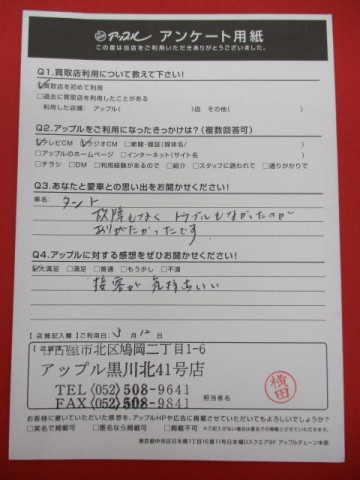 アップル アンケート用紙
この度は当店をご利用いただきありがとうございました。
Q1.買取店利用について教えて下さい!
買取店を初めて利用
□過去に買取店を利用したことがある
利用した店舗: アップル( )店 その他( )
Q2.アップルをご利用になったきっかけは?(複数回答可)
テレビCM ラジオCM □新聞・雑誌(媒体名/ )
□アップルのホームページ □インターネット(サイト名 )
□チラシ □DM □利用経験があるので □紹介 □スタッフに誘われて □通りがかりで
Q3.あなたと愛車との思い出をお聞かせください!
車名: タント
故障もなく トラブルもなかったので
ありがたかったです
Q4.アップルに対する感想をぜひお聞かせください!
大満足 □満足 □普通 □もう少し □不満
接客が気持ちいい
【店舗記入欄】ご利用日: 3月12日
名古屋市北区鳩岡二丁目1-6
アップル黒川北41号店
TEL(052)508-9641
FAX(052)508-9841
担当者
横田
お客様に書いていただいた感想を、アップルHPや広告に掲載させていただいてもよろしいでしょうか?
□実名で掲載可 □匿名なら掲載可 □掲載不可
東京都中央区日本橋1丁目16番11号日本橋Dスクエア8F アップルチェーン本部